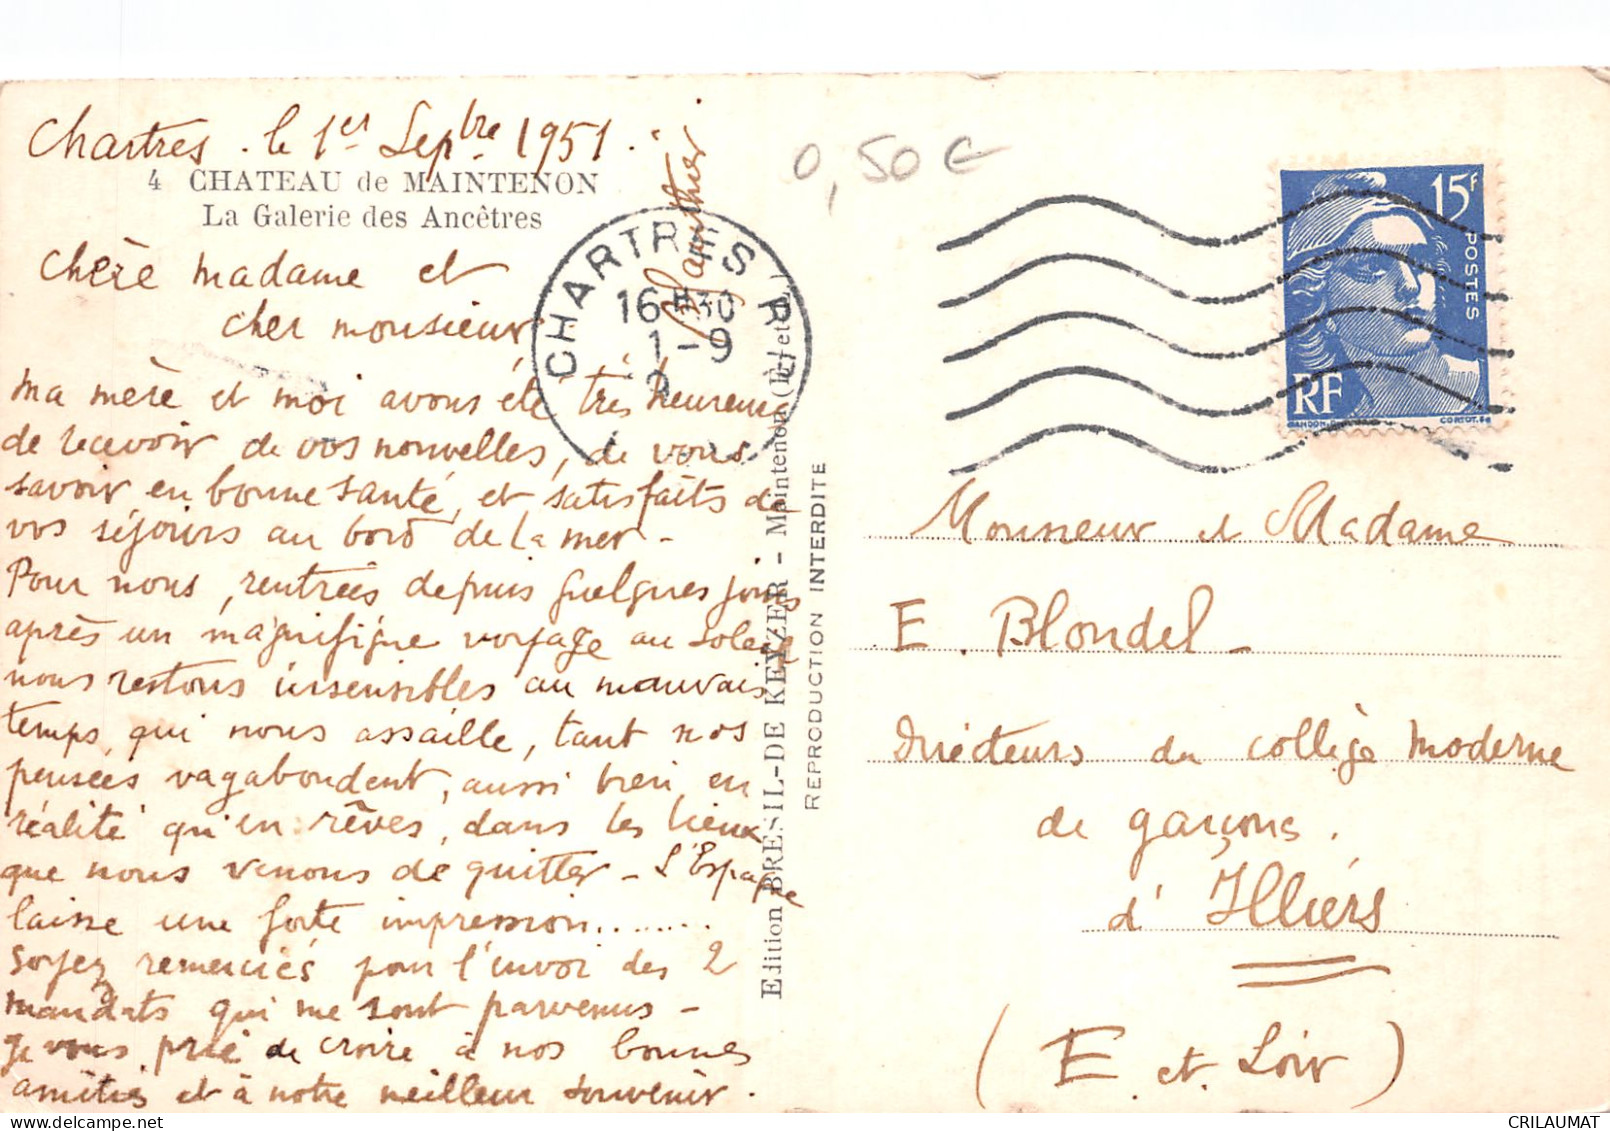 Chartres . le 1er Sepbre 1951.
4 CHATEAU de MAINTENON
La Galerie des Ancêtres
Chère Madame et
cher monsieur
Ma mère et moi avons été très heureuses
de recevoir de vos nouvelles, de vous
savoir en bonne santé, et satisfaits de
vos séjours au bord de la mer -
Pour nous, rentrées depuis quelques jours
après un magnifique voyage au soleil
nous restons insensibles au mauvais
temps, qui nous assaille, tant nos
pensées vagabondent, aussi bien en
réalité qu'en rêves, dans les lieux
que nous venons de quitter - L'Espagne
laisse une forte impression........
Soyez remerciés pour l'envoi des 2
mandats qui me sont parvenus -
Je vous prie de croire à nos bonnes
amitiés et à notre meilleur souvenir.
CHARTRES R.P.
16 H30
1 - 9
Edition BRESIL-DE KEYZER - Maintenon (E.-et-L.)
REPRODUCTION INTERDITE
0,50 €
15F
POSTES
RF
GANDON
CORTOT
Monsieur et Madame
E. Blondel -
Directeurs du collège moderne
de garçons.
d'Illiers
(E et Loir)
CRILAUMAT